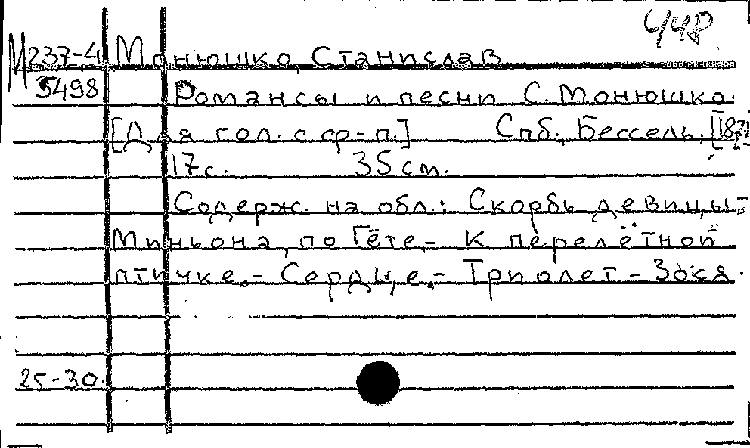 448
М237-4 Монюшко, Станислав
5498 Романсы и песни С. Монюшко.
[Для гол. с ф-п.] Спб., Бессель,
17 с. 35 см.
Содерж. на обл.: Скорбь девицы.-
Миньона, по Гёте.- К перелётной
птичке.- Сердце.- Триолет.- Зося.
25-30.